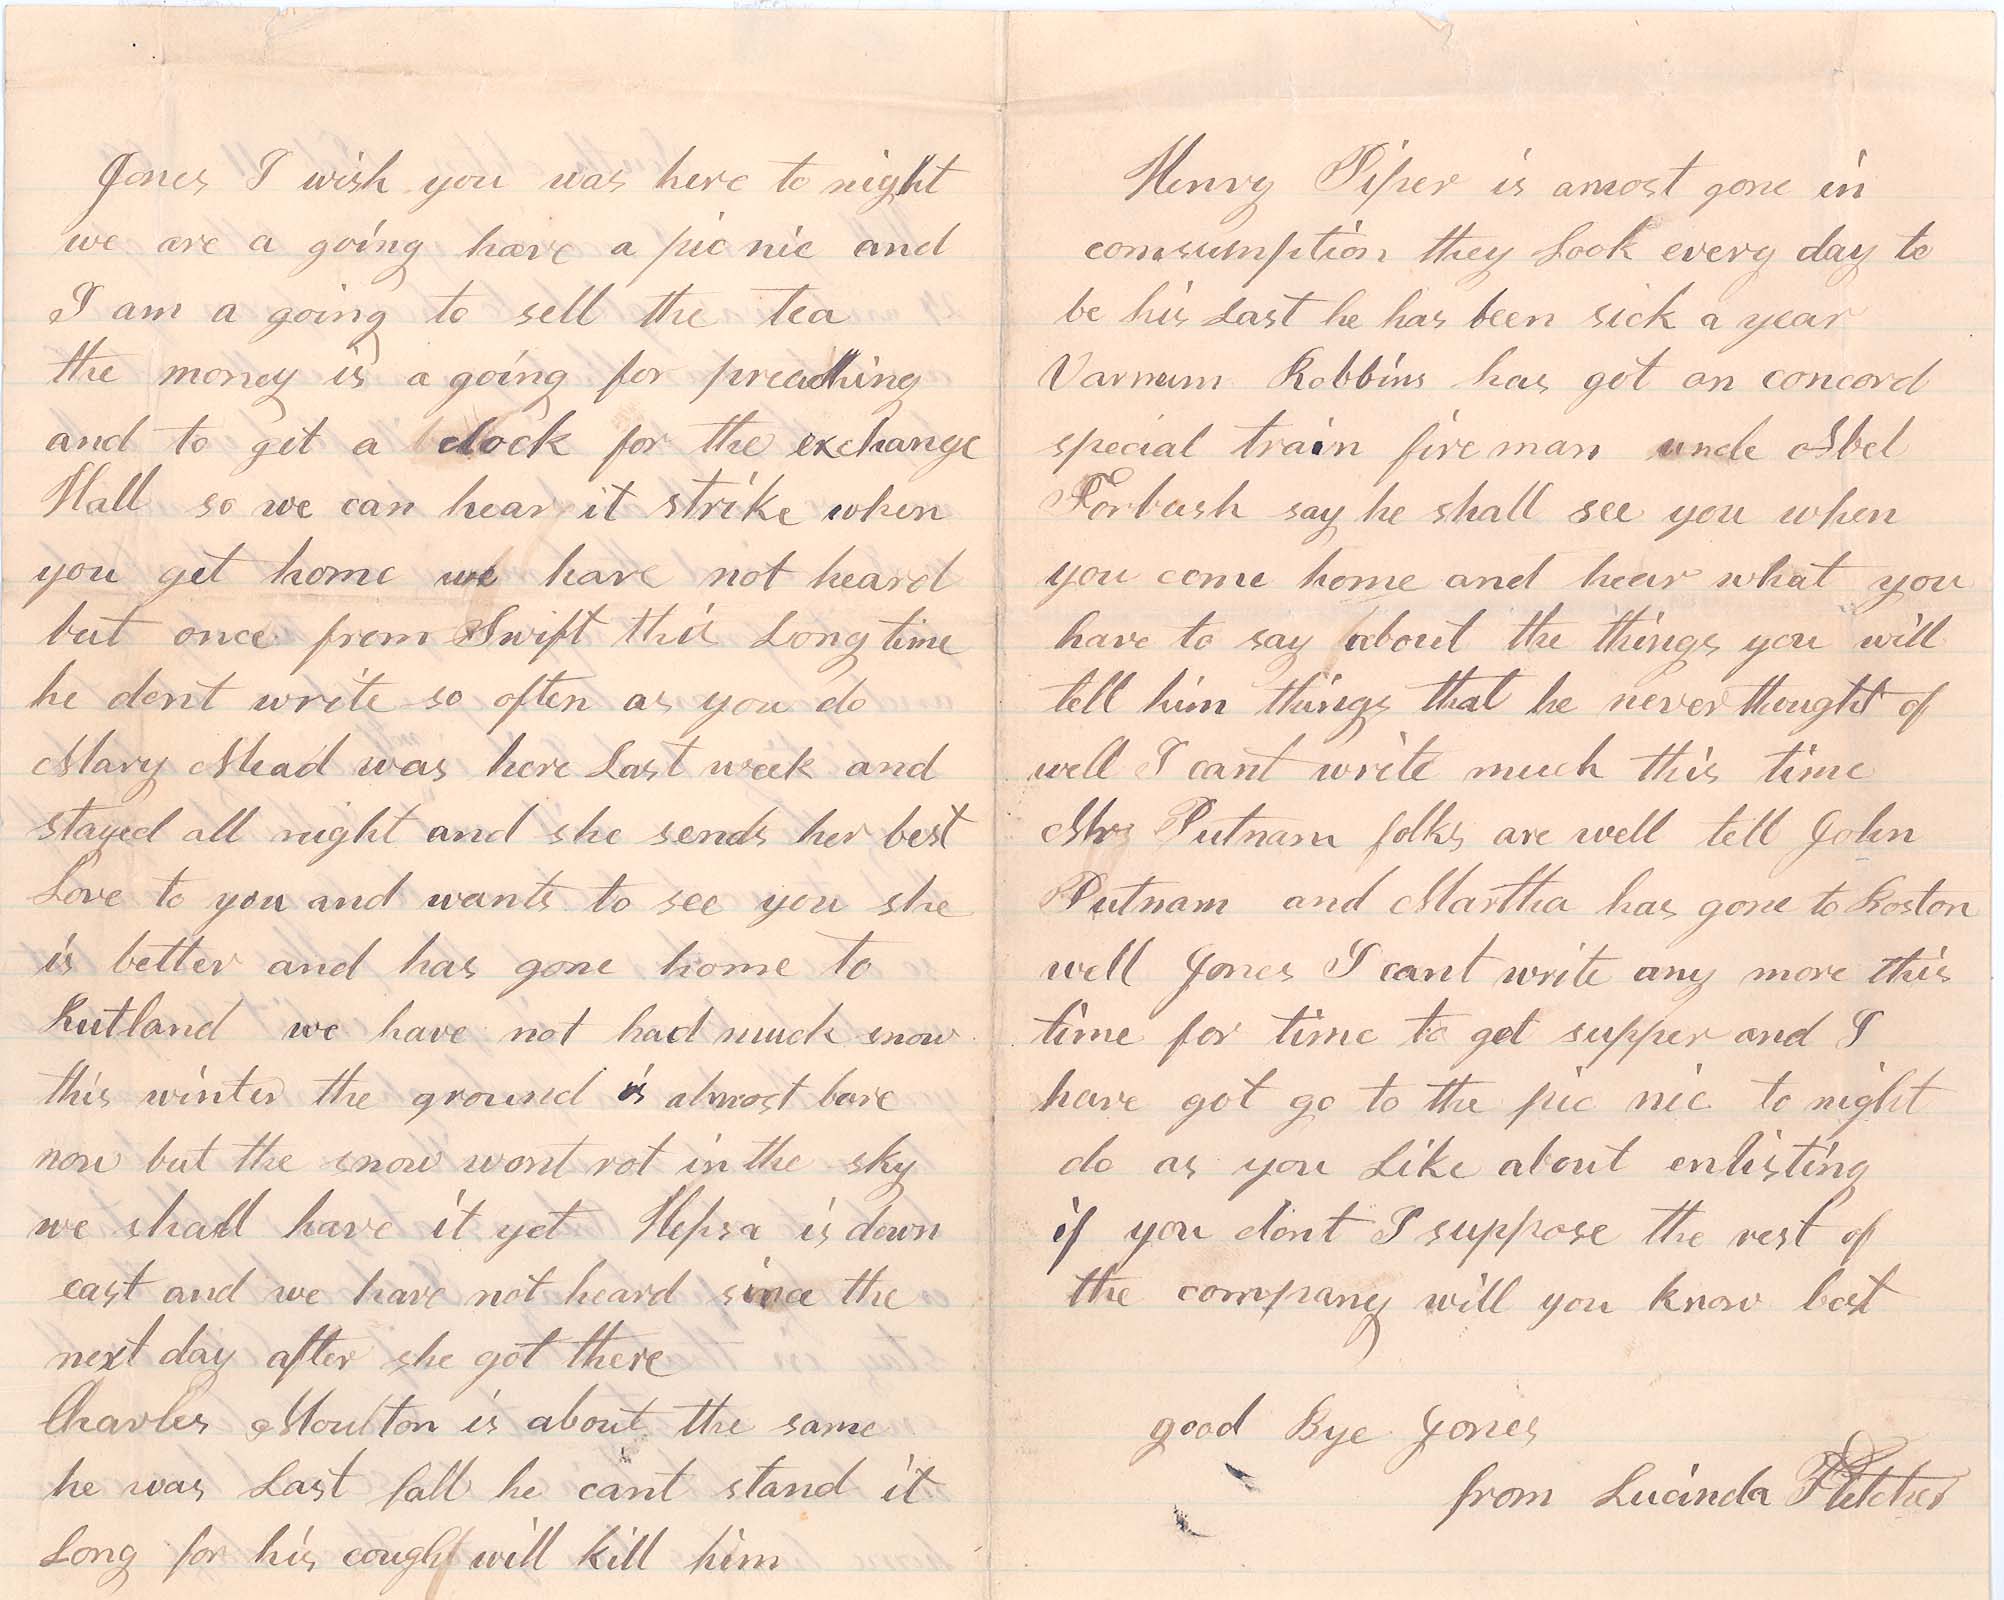 Jones I wish you was here to night
we are a going have a pic nic and
I am a going to sell the tea
the money is a going for preaching
and to get a clock for the exchange
Hall so we can hear it strike when
you get home we have not heard
but once from Swift this Long time
he dont write so often as you do
Mary Mead was here Last week and
stayed all night and she sends her best
Love to you and wants to see you she
is better and has gone home to
Rutland we have not had much snow
this winter the ground is almost bare
now but the snow wont rot in the sky
we shall have it yet Hepsa is down
east and we have not heard since the
next day after she got there
Charles Moulton is about the same
he was Last fall he cant stand it
Long for his cough will kill him
Henry Piper is amost gone in
comsumption they Look every day to
be his Last he has been sick a year
Varnum Robbins has got on concord
special train fire man uncle Abel
Forbush say he shall see you when
you come home and hear what you
have to say about the things you will
tell him things that he never thought of
well I cant write much this time
Mrs Putnam folks are well tell John
Putnam and Martha has gone to Boston
well Jones I cant write any more this
time for time to get supper and I
have got go to the pic nic to night
do as you Like about enlisting
if you dont I suppose the rest of
the company will you know best
good Bye Jones
from Lucinda Fletcher